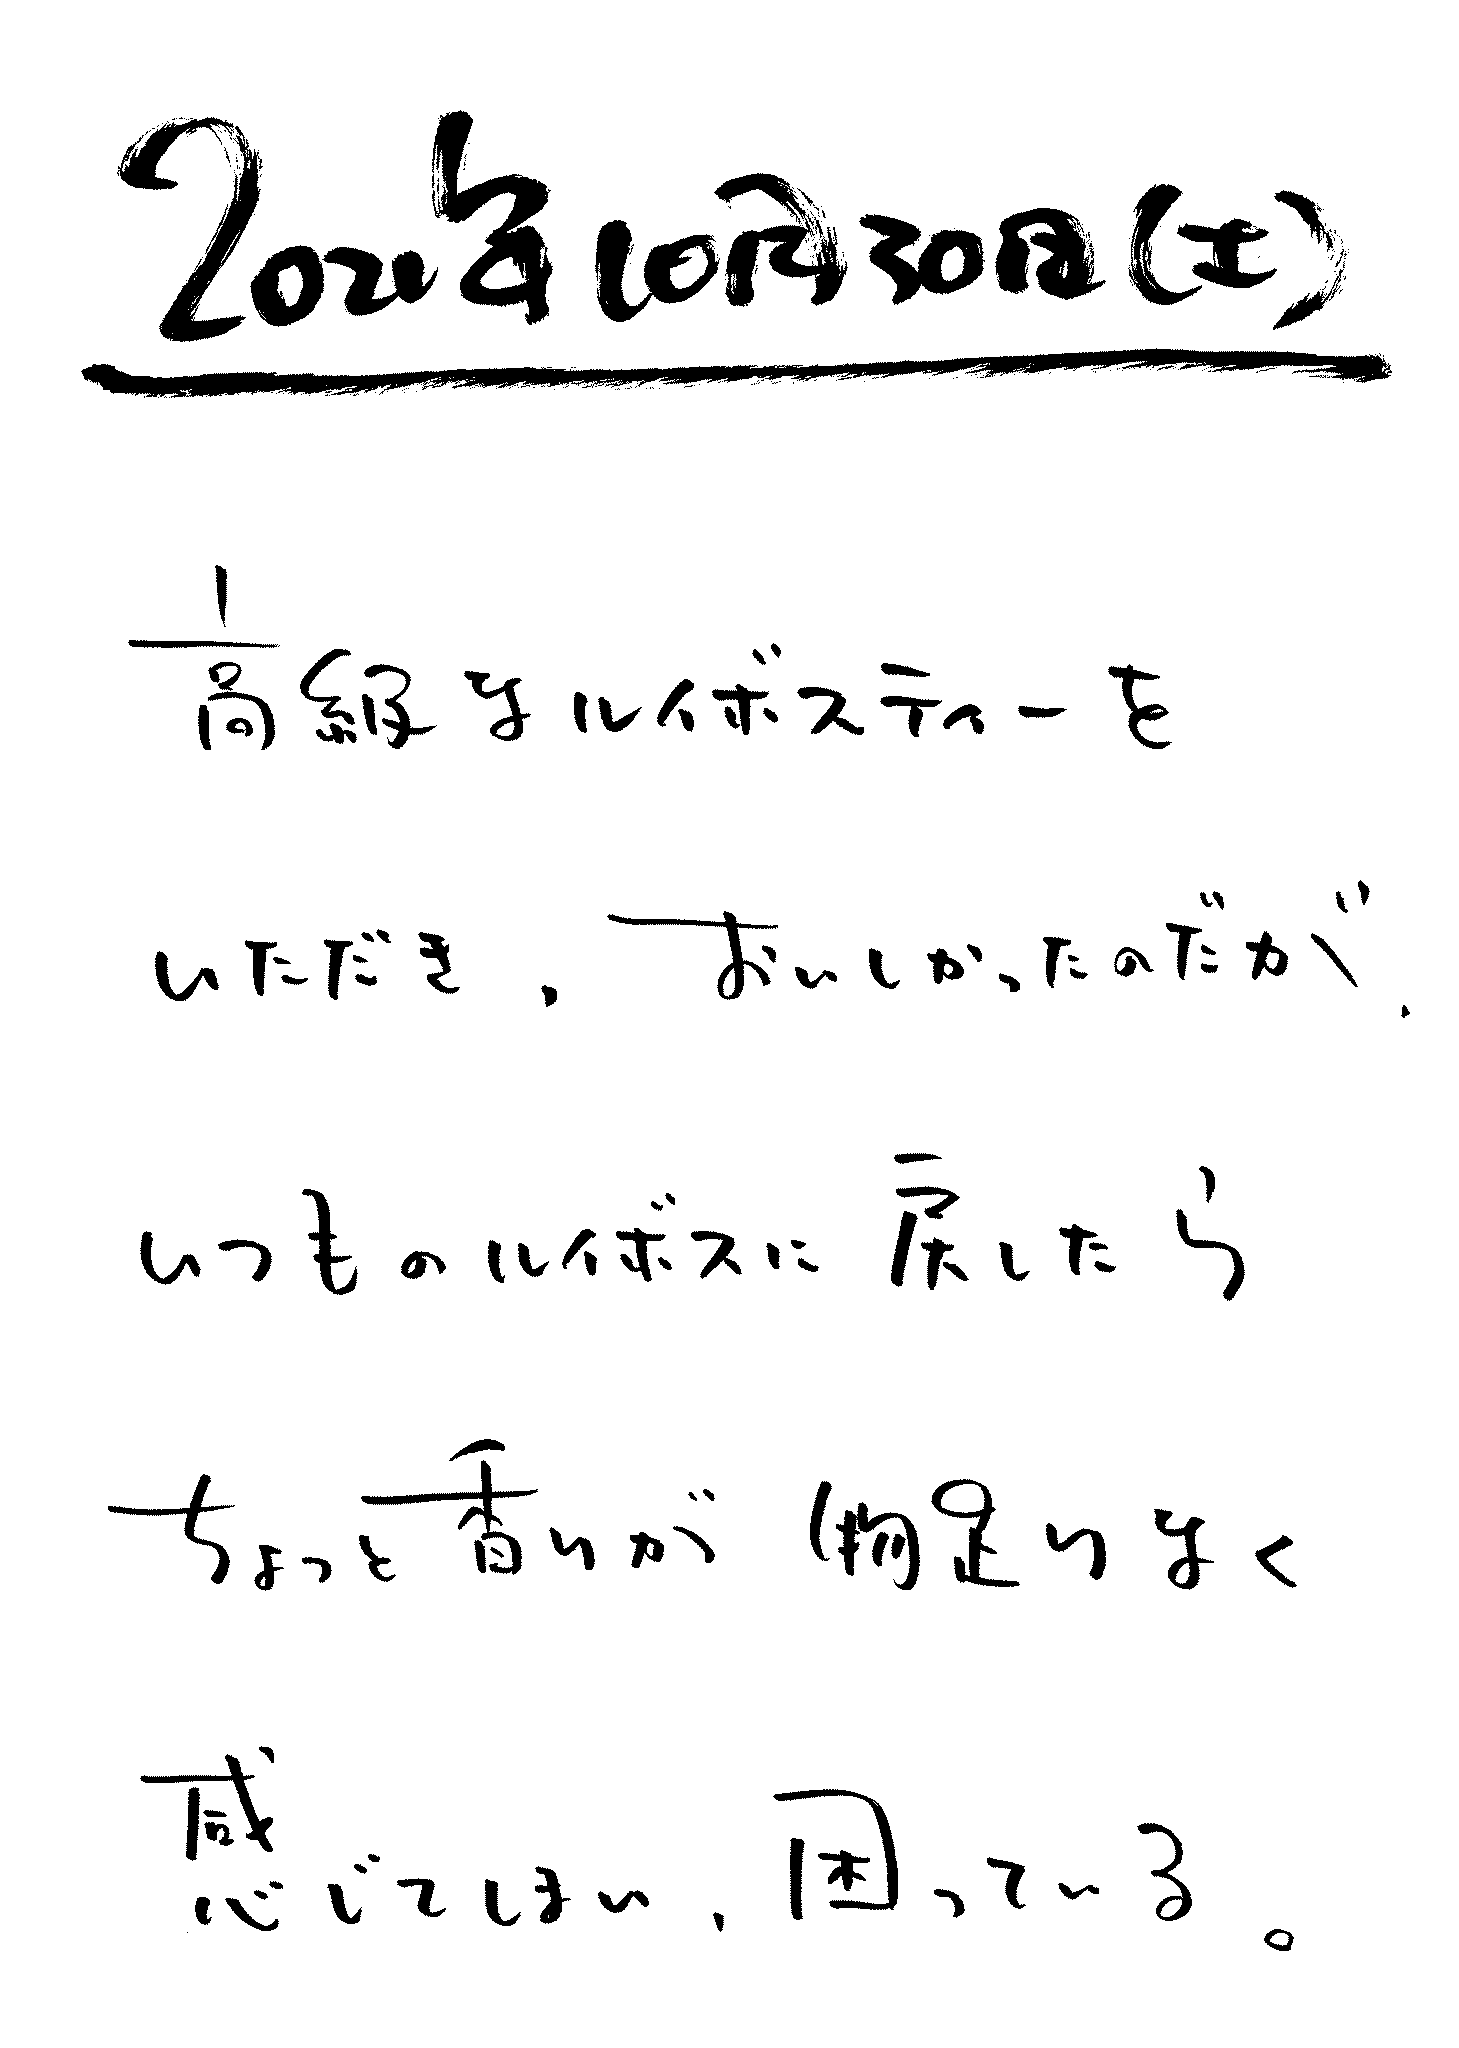 2021年10月30日(土)
高級なルイボスティーを
いただき、おいしかったのだが、
いつものルイボスに戻したら
ちょっと香りが物足りなく
感じてしまい、困っている。